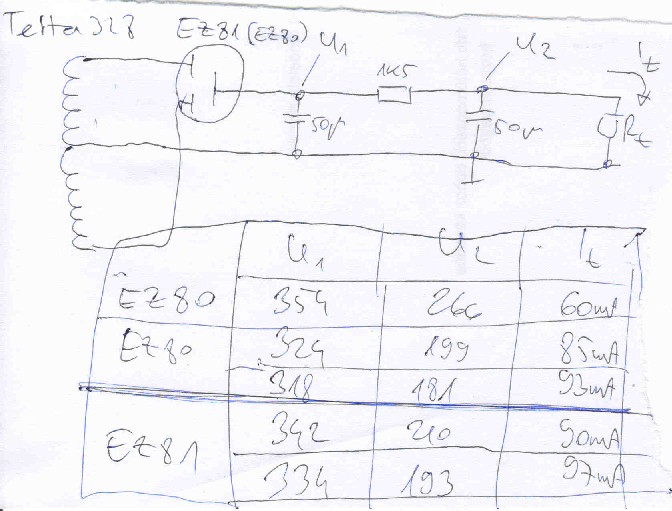 Tesla 328 EZ81 (EZ80) U1 U2 It
1K5
50µ 50µ Rt
U1 U2 It
EZ80 354 266 60mA
EZ80 324 199 85mA
318 181 93mA
EZ81 342 210 90mA
334 193 97mA